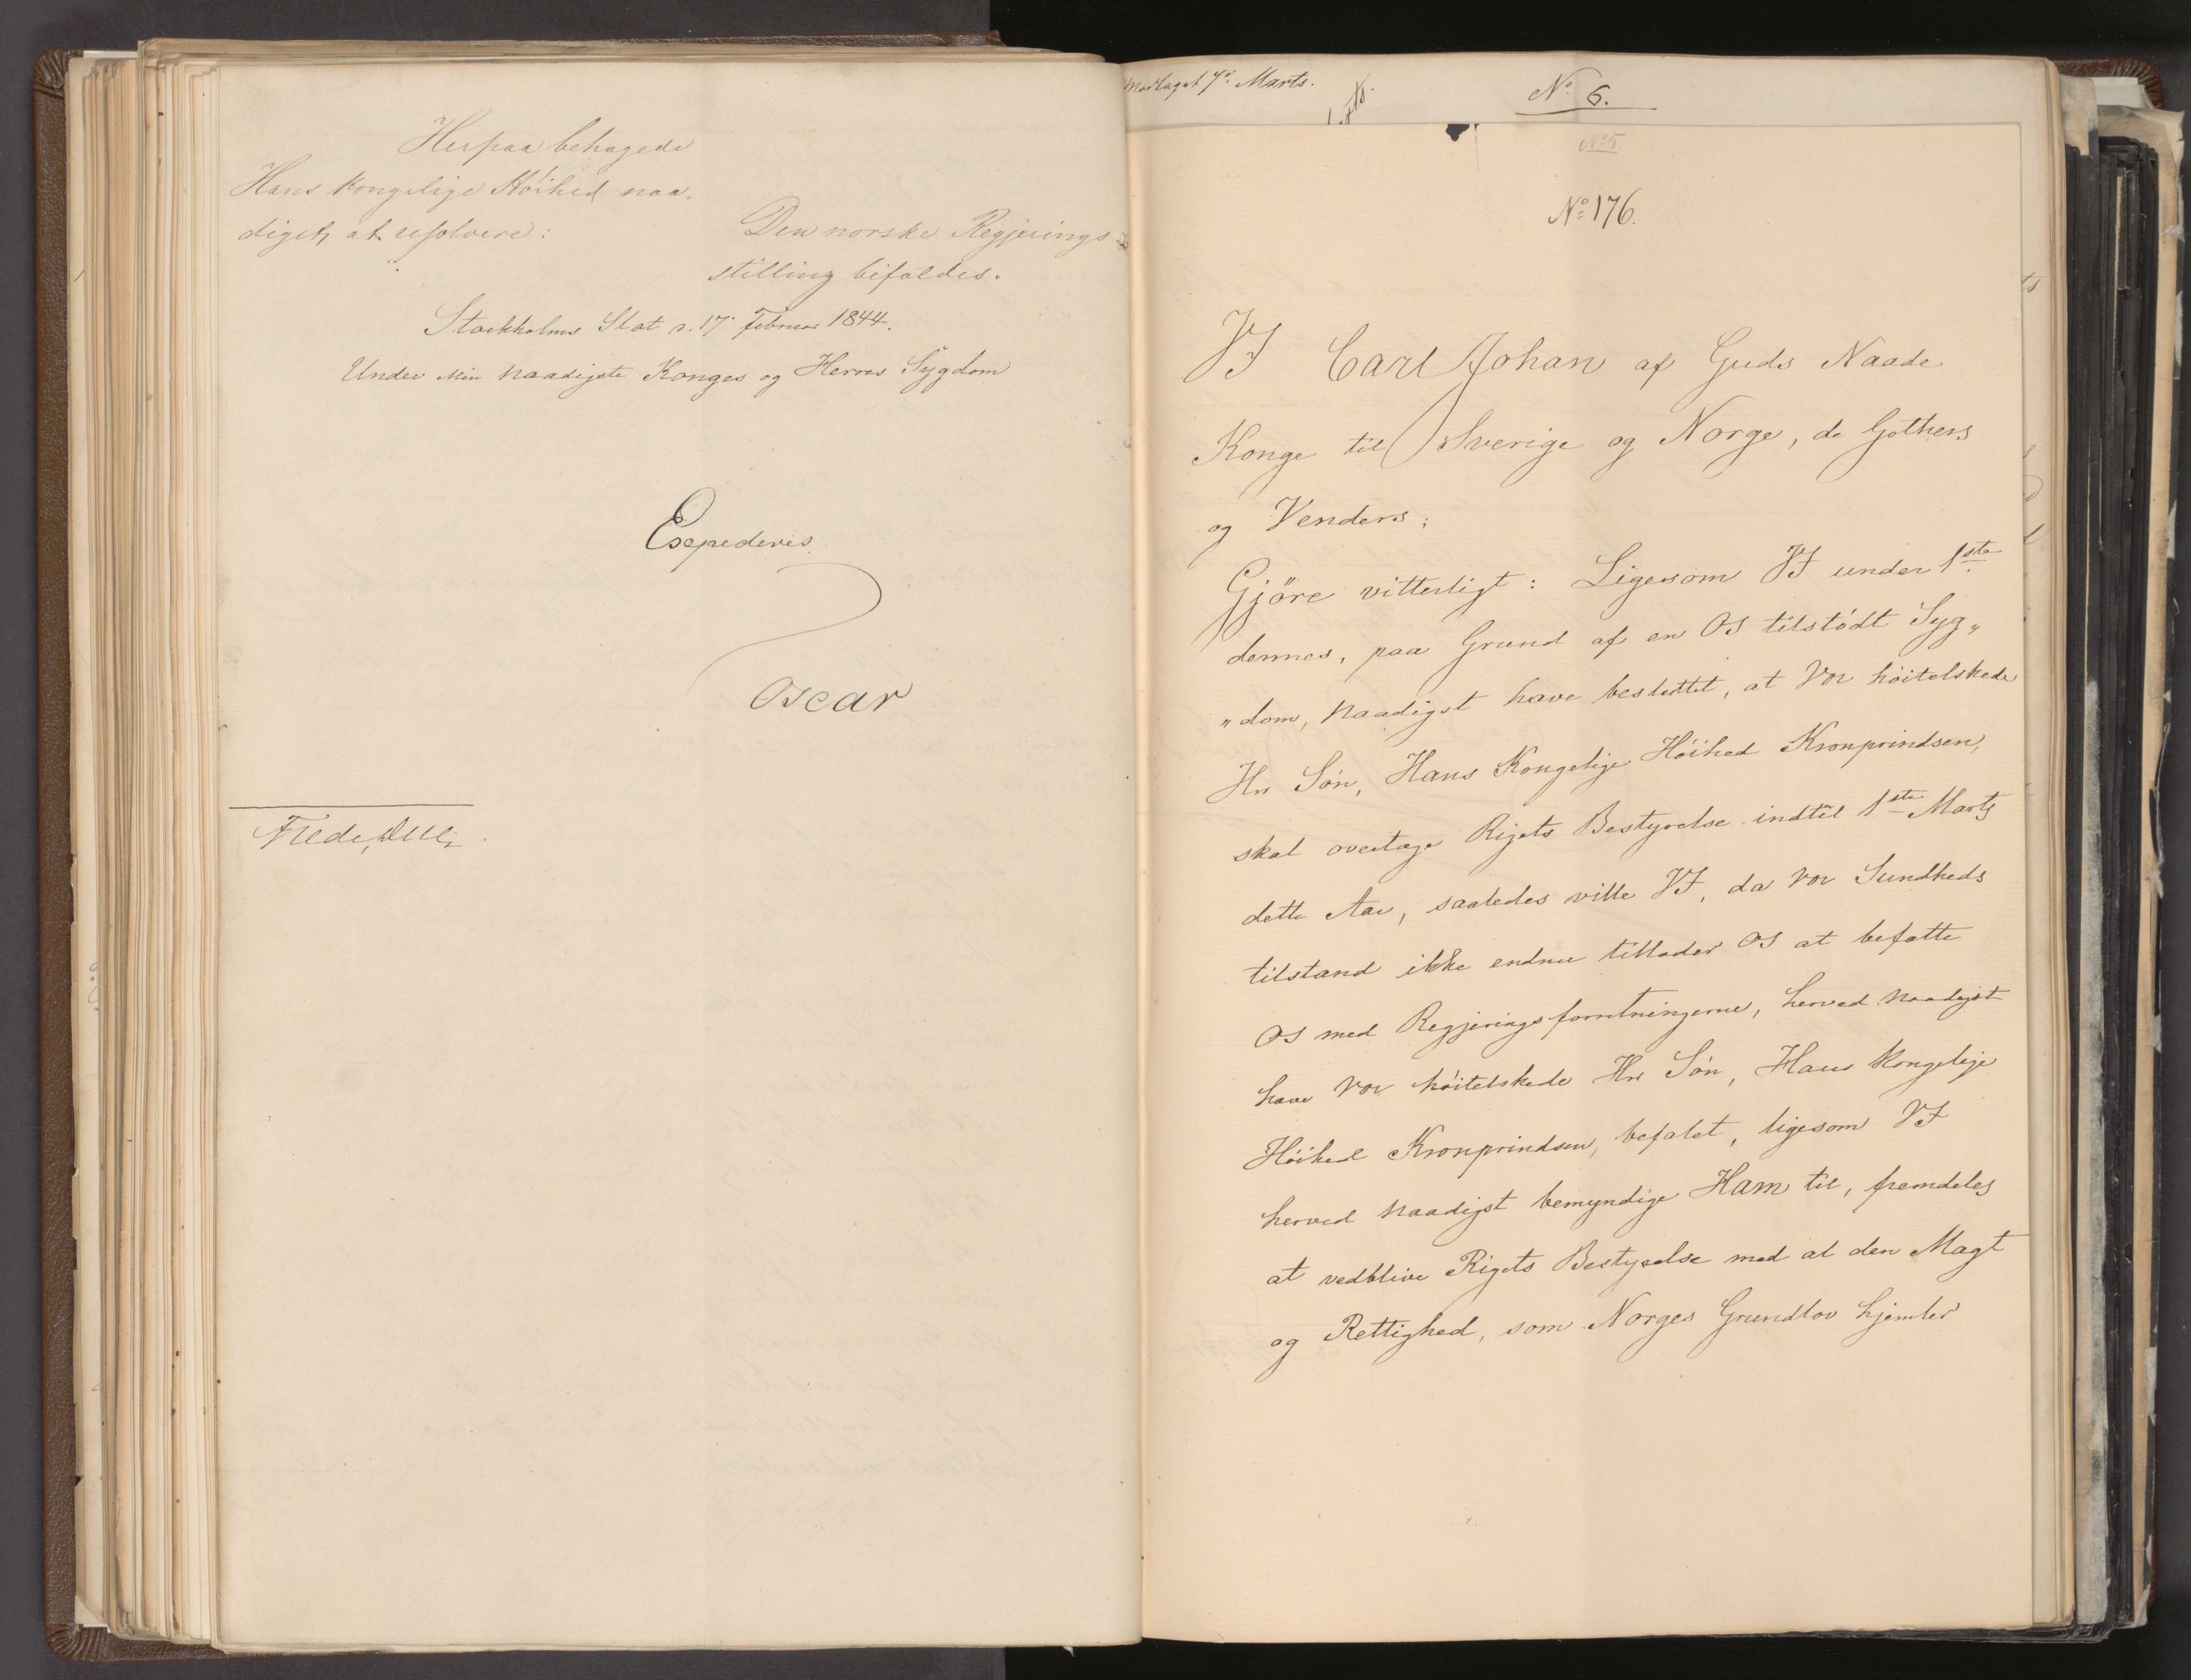 Herpaa behagede
Hans Kongelige Höihed naa-
digst at resolvere:
Den norske Regjerings
stilling bifaldes.
Stockholms Slot d. 17de Februar 1844.
Under Min naadigste Konges og Herres Sygdom
Expederes
Oscar
Fredr. Due
Modtaget 7de Marts.
No 6.
No 5.
No 176.
VI Carl Johan af Guds Naade
Konge til Sverige og Norge, de Gothers
og Venders;
Gjöre vitterligt: Ligesom VI under 1ste
dennes, paa Grund af en OS tilstödt Syg„
„dom, Naadigst have besluttet, at Vor höitelskede
Hr Sön, Hans Kongelige Höihed Kronprindsen,
skal overtage Rigets Bestyrelse indtil 1ste Marts
dette Aar, saaledes ville VI, da Vor Sundheds
tilstand ikke endnu tillader OS at befatte
OS med Regjeringsforretningerne, herved Naadigst
have Vor höitelskede Hr Sön, Hans Kongelige
Höihed Kronprindsen, befalet, ligesom VI
herved Naadigst bemyndige Ham til, fremdeles
at vedblive Rigets Bestyrelse med al den Magt
og Rettighed, som Norges Grundlov hjemler